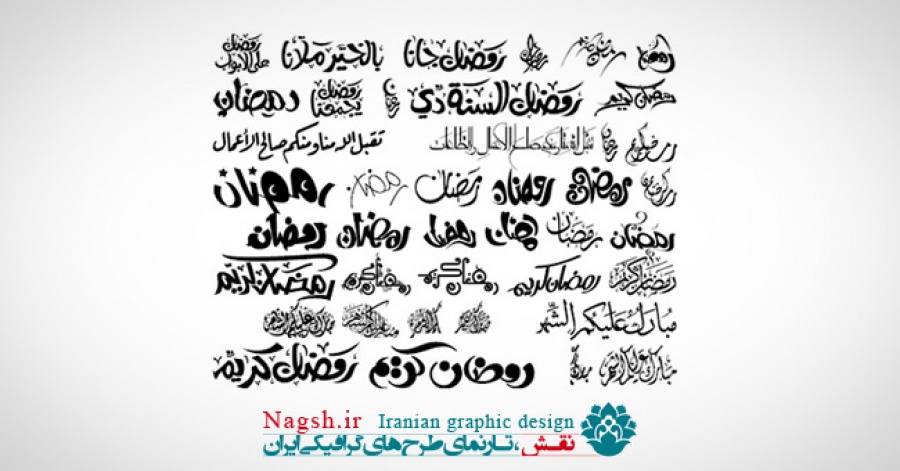 رمضان رمضان كريم رمضان رمضان جانا بالخير ملانا رمضان على الأبواب
رمضان كريم رمضان السنة دي رمضان رمضان يجمعنا رمضان
رمضان كريم رمضان تقبل الله منا ومنكم صالح الأعمال
رمضان كريم رمضان رمضان رمضان رمضان رمضان
رمضان رمضان رمضان رمضان رمضان
رمضان كريم رمضان كريم رمضان كريم رمضان كريم رمضان كريم
مبارك عليكم الشهر
مبارك عليكم الشهر رمضان كريم رمضان كريم
Nagsh.ir Iranian graphic design
نقش، تارنمای طرح‌های گرافیکی ایران